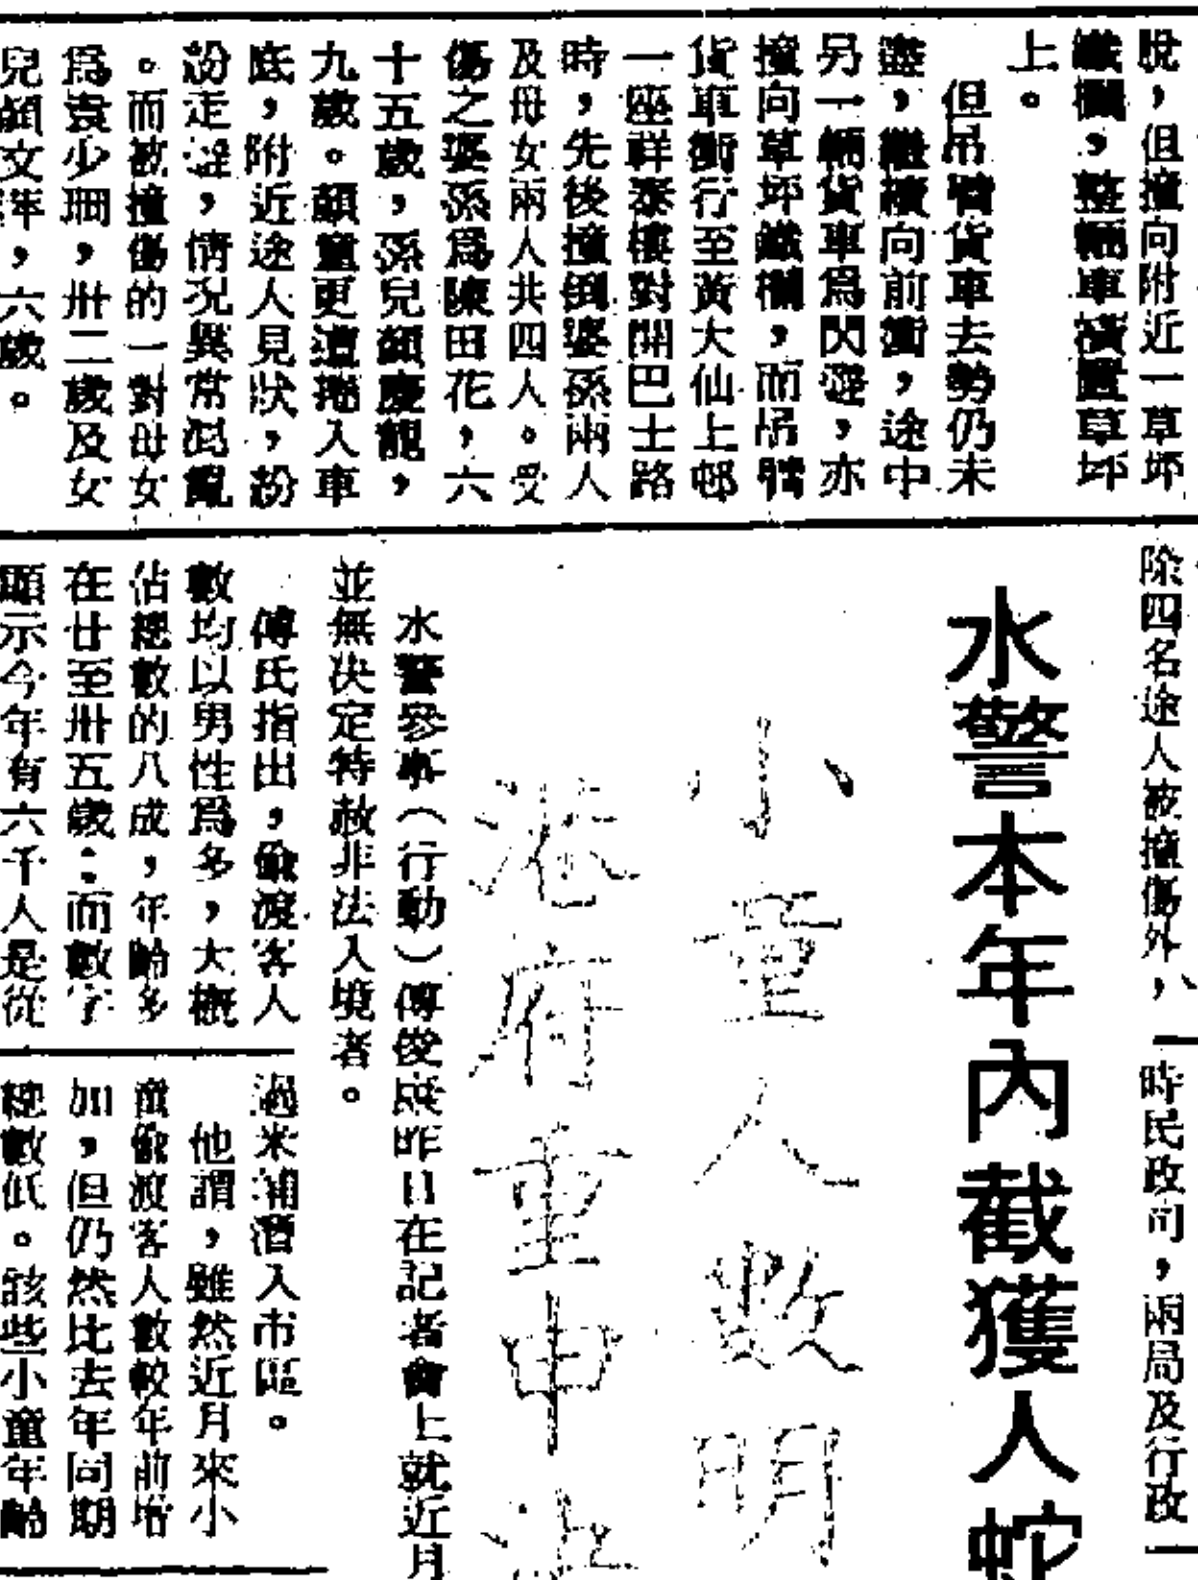 脫，但撞向附近一草坪
鐵欄，整輛車橫置草坪
上。
但吊臂貨車去勢仍未
盡，繼續向前衝，途中
另一輛貨車爲閃避，亦
撞向草坪鐵欄，而吊臂
貨車衝行至黃大仙上邨
一座祥泰樓對開巴士路
時，先後撞倒婆孫兩人
及母女兩人共四人。受
傷之婆孫爲陳田花，六
十五歲，孫兒顏慶龍，
九歲。顏童更遭捲入車
底，附近途人見狀，紛
紛走避，情況異常混亂
。而被撞傷的一對母女
爲袁少珊，卅二歲及女
兒顏文萍，六歲。
除四名途人被撞傷外，
時民政司，兩局及行政
水警本年內截獲人蛇
小童人數明
港府重申
水警參事（行動）傅俊庭昨日在記者會上就近月
並無決定特赦非法入境者。
傅氏指出，偷渡客人
數均以男性爲多，大概
佔總數的八成，年齡多
在廿至卅五歲；而數字
顯示今年有六千人是從
過米埔潛入市區。
他謂，雖然近月來小
童偷渡客人數較年前增
加，但仍然比去年同期
總數低。該些小童年齡